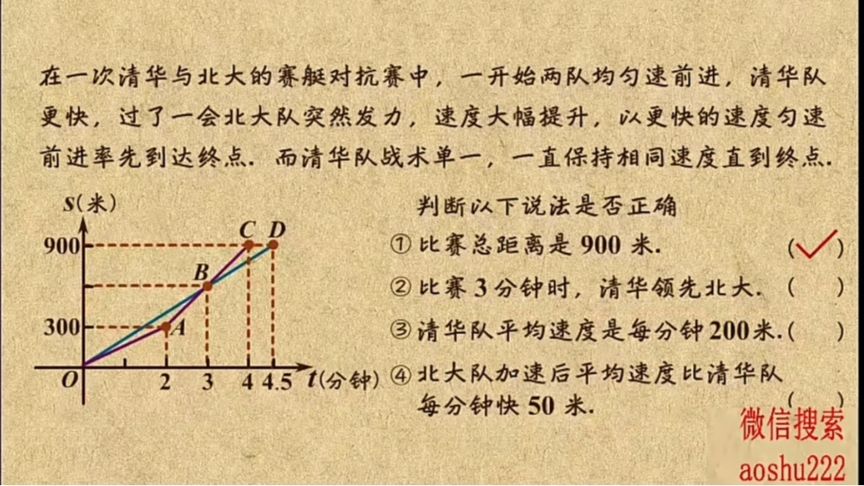 在一次清华与北大的赛艇对抗赛中，一开始两队均匀速前进，清华队
更快，过了一会北大队突然发力，速度大幅提升，以更快的速度匀速
前进率先到达终点．而清华队战术单一，一直保持相同速度直到终点．
判断以下说法是否正确
①比赛总距离是 900 米． (✓)
②比赛 3 分钟时，清华领先北大． ( )
③清华队平均速度是每分钟 200 米． ( )
④北大队加速后平均速度比清华队
每分钟快 50 米． ( )
s(米)
C D
900
B
300
A
O 2 3 4 4.5 t(分钟)
微信搜索
aoshu222